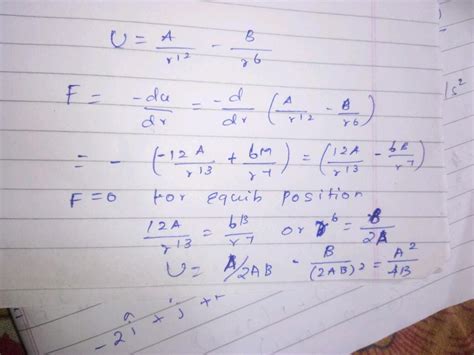 U = A/r¹² - B/r⁶
/s²
F = -du/dr = -d/dr (A/r¹² - B/r⁶)
= - (-12A/r¹³ + 6M/r⁷) = (12A/r¹³ - 6B/r⁷)
F=0 for equib position
12A/r¹³ = 6B/r⁷ or r⁶ = B/2A
U = A/2AB - B/(2AB)² = A²/4B
-2i + j +